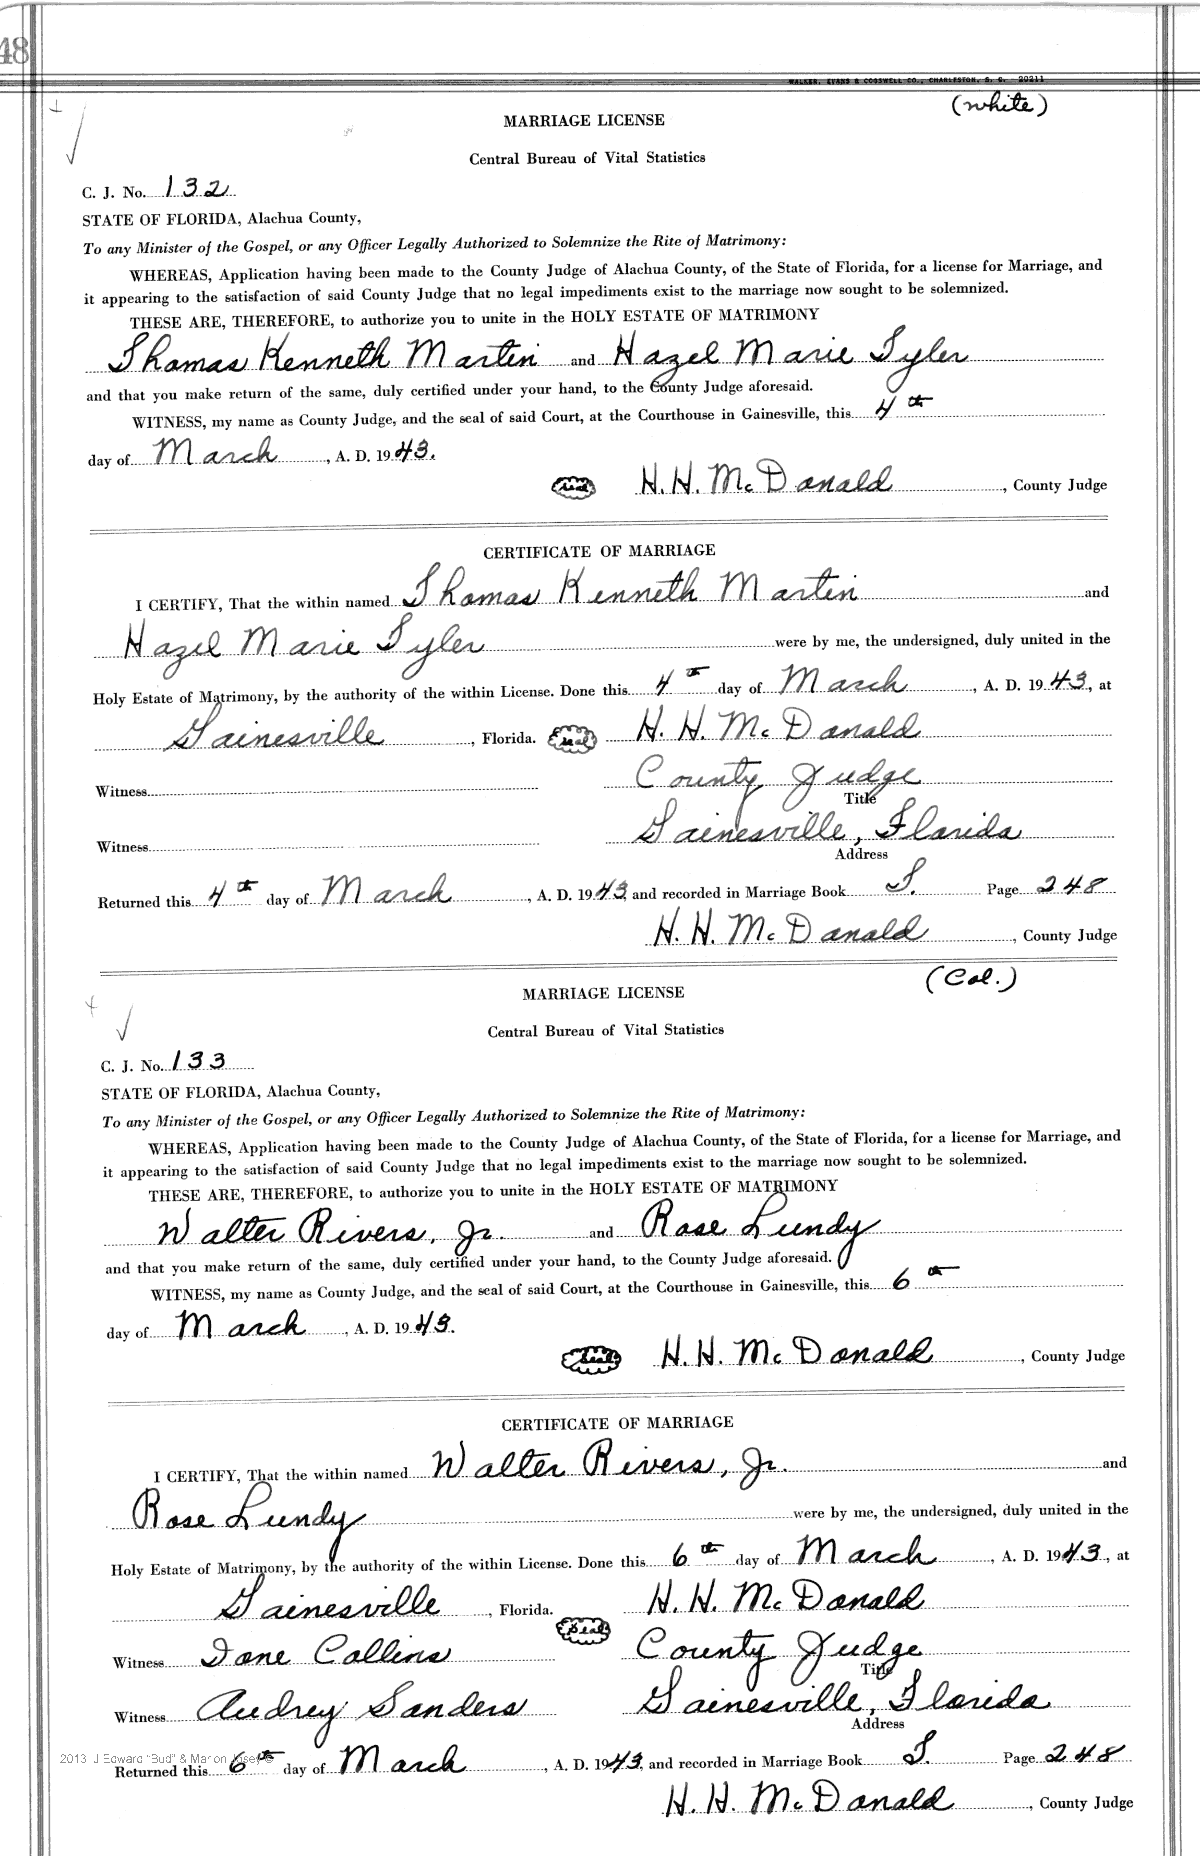 48
WALKER, EVANS & COGSWELL CO., CHARLESTON, S. C. 20211
(white)
MARRIAGE LICENSE
Central Bureau of Vital Statistics
C. J. No. 132
STATE OF FLORIDA, Alachua County,
To any Minister of the Gospel, or any Officer Legally Authorized to Solemnize the Rite of Matrimony:
WHEREAS, Application having been made to the County Judge of Alachua County, of the State of Florida, for a license for Marriage, and
it appearing to the satisfaction of said County Judge that no legal impediments exist to the marriage now sought to be solemnized.
THESE ARE, THEREFORE, to authorize you to unite in the HOLY ESTATE OF MATRIMONY
Thomas Kenneth Martin and Hazel Marie Tyler
and that you make return of the same, duly certified under your hand, to the County Judge aforesaid.
WITNESS, my name as County Judge, and the seal of said Court, at the Courthouse in Gainesville, this 4th
day of March, A. D. 1943.
Seal H. H. McDonald, County Judge
CERTIFICATE OF MARRIAGE
I CERTIFY, That the within named Thomas Kenneth Martin and
Hazel Marie Tyler were by me, the undersigned, duly united in the
Holy Estate of Matrimony, by the authority of the within License. Done this 4th day of March, A. D. 1943, at
Gainesville, Florida. Seal H. H. McDonald
Witness County Judge
Title
Witness Gainesville, Florida
Address
Returned this 4th day of March, A. D. 1943, and recorded in Marriage Book Page 248
H. H. McDonald, County Judge
(Col.)
MARRIAGE LICENSE
Central Bureau of Vital Statistics
C. J. No. 133
STATE OF FLORIDA, Alachua County,
To any Minister of the Gospel, or any Officer Legally Authorized to Solemnize the Rite of Matrimony:
WHEREAS, Application having been made to the County Judge of Alachua County, of the State of Florida, for a license for Marriage, and
it appearing to the satisfaction of said County Judge that no legal impediments exist to the marriage now sought to be solemnized.
THESE ARE, THEREFORE, to authorize you to unite in the HOLY ESTATE OF MATRIMONY
Walter Rivers, Jr. and Rose Lundy
and that you make return of the same, duly certified under your hand, to the County Judge aforesaid.
WITNESS, my name as County Judge, and the seal of said Court, at the Courthouse in Gainesville, this 6th
day of March, A. D. 1943.
Seal H. H. McDonald, County Judge
CERTIFICATE OF MARRIAGE
I CERTIFY, That the within named Walter Rivers, Jr. and
Rose Lundy were by me, the undersigned, duly united in the
Holy Estate of Matrimony, by the authority of the within License. Done this 6th day of March, A. D. 1943, at
Gainesville, Florida. Seal H. H. McDonald
Witness Collins County Judge
Title
Witness Audrey Sanders Gainesville, Florida
Address
2013 J Edward "Bud" & Marion Josey ©
Returned this 6th day of March, A. D. 1943, and recorded in Marriage Book Page 248
H. H. McDonald, County Judge